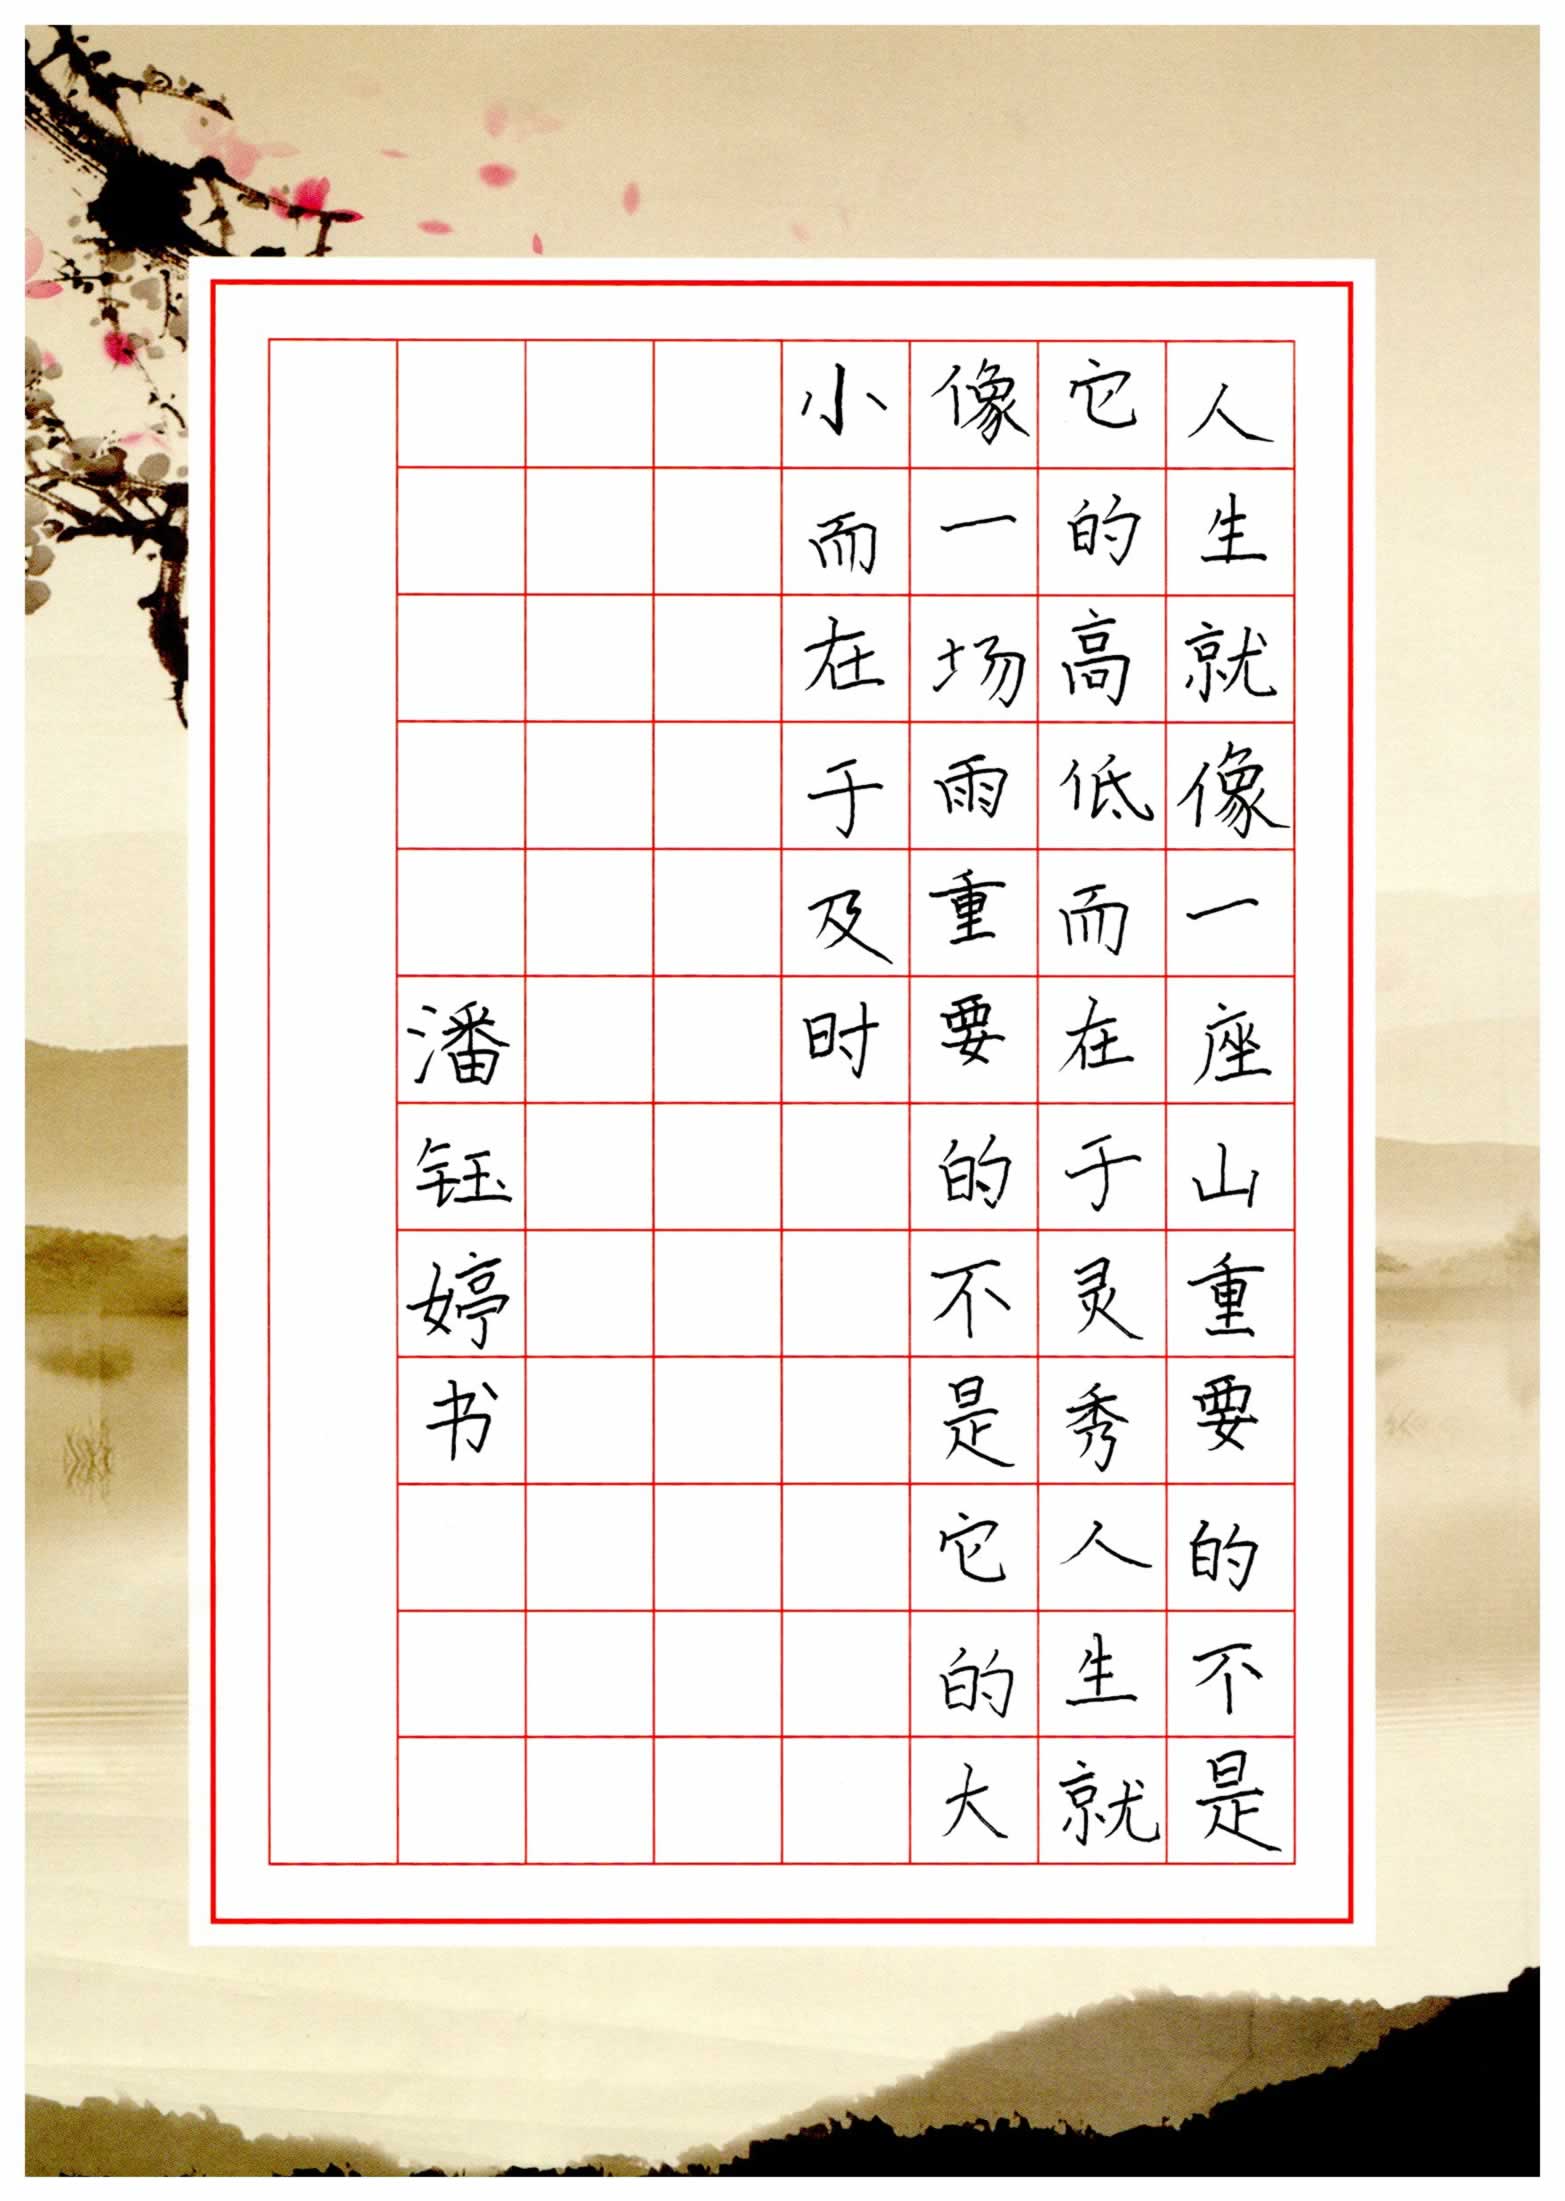 人生就像一座山重要的不是
它的高低而在于灵秀人生就
像一场雨重要的不是它的大
小而在于及时
潘钰婷书